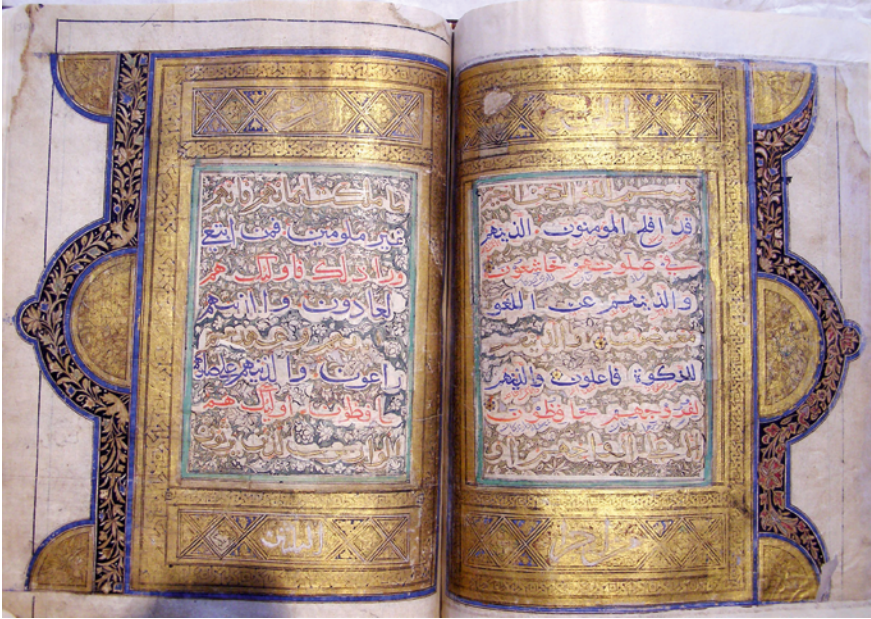 بسم الله الرحمن الرحيم
قد افلح المومنون الذين هم
في صلوتهم خاشعون
والذين هم عن اللغو
معرضون والذين هم
للزكوة فاعلون والذين هم
لفروجهم حافظون
الا على ازواجهم او
من اجزا
ما ملكت ايمانهم فانهم
غير ملومين فمن ابتغى
ورا ذلك فاوليك هم
لعادون والذين هم
وعهدهم
راعون والذين هم على
حافظون اوليك هم
الوارثون الذين يرثون
الثلثين